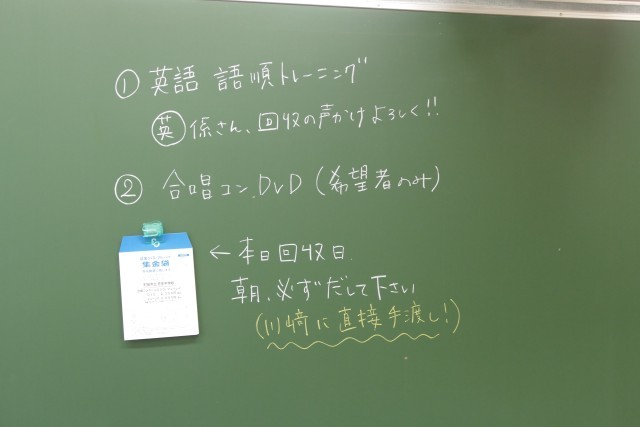 ① 英語 語順トレーニング
英 係さん、回収の声かけよろしく!!
② 合唱コン.DVD(希望者のみ)
集金袋
← 本日回収日.
朝、必ずだして下さい
(川﨑に直接手渡し!)